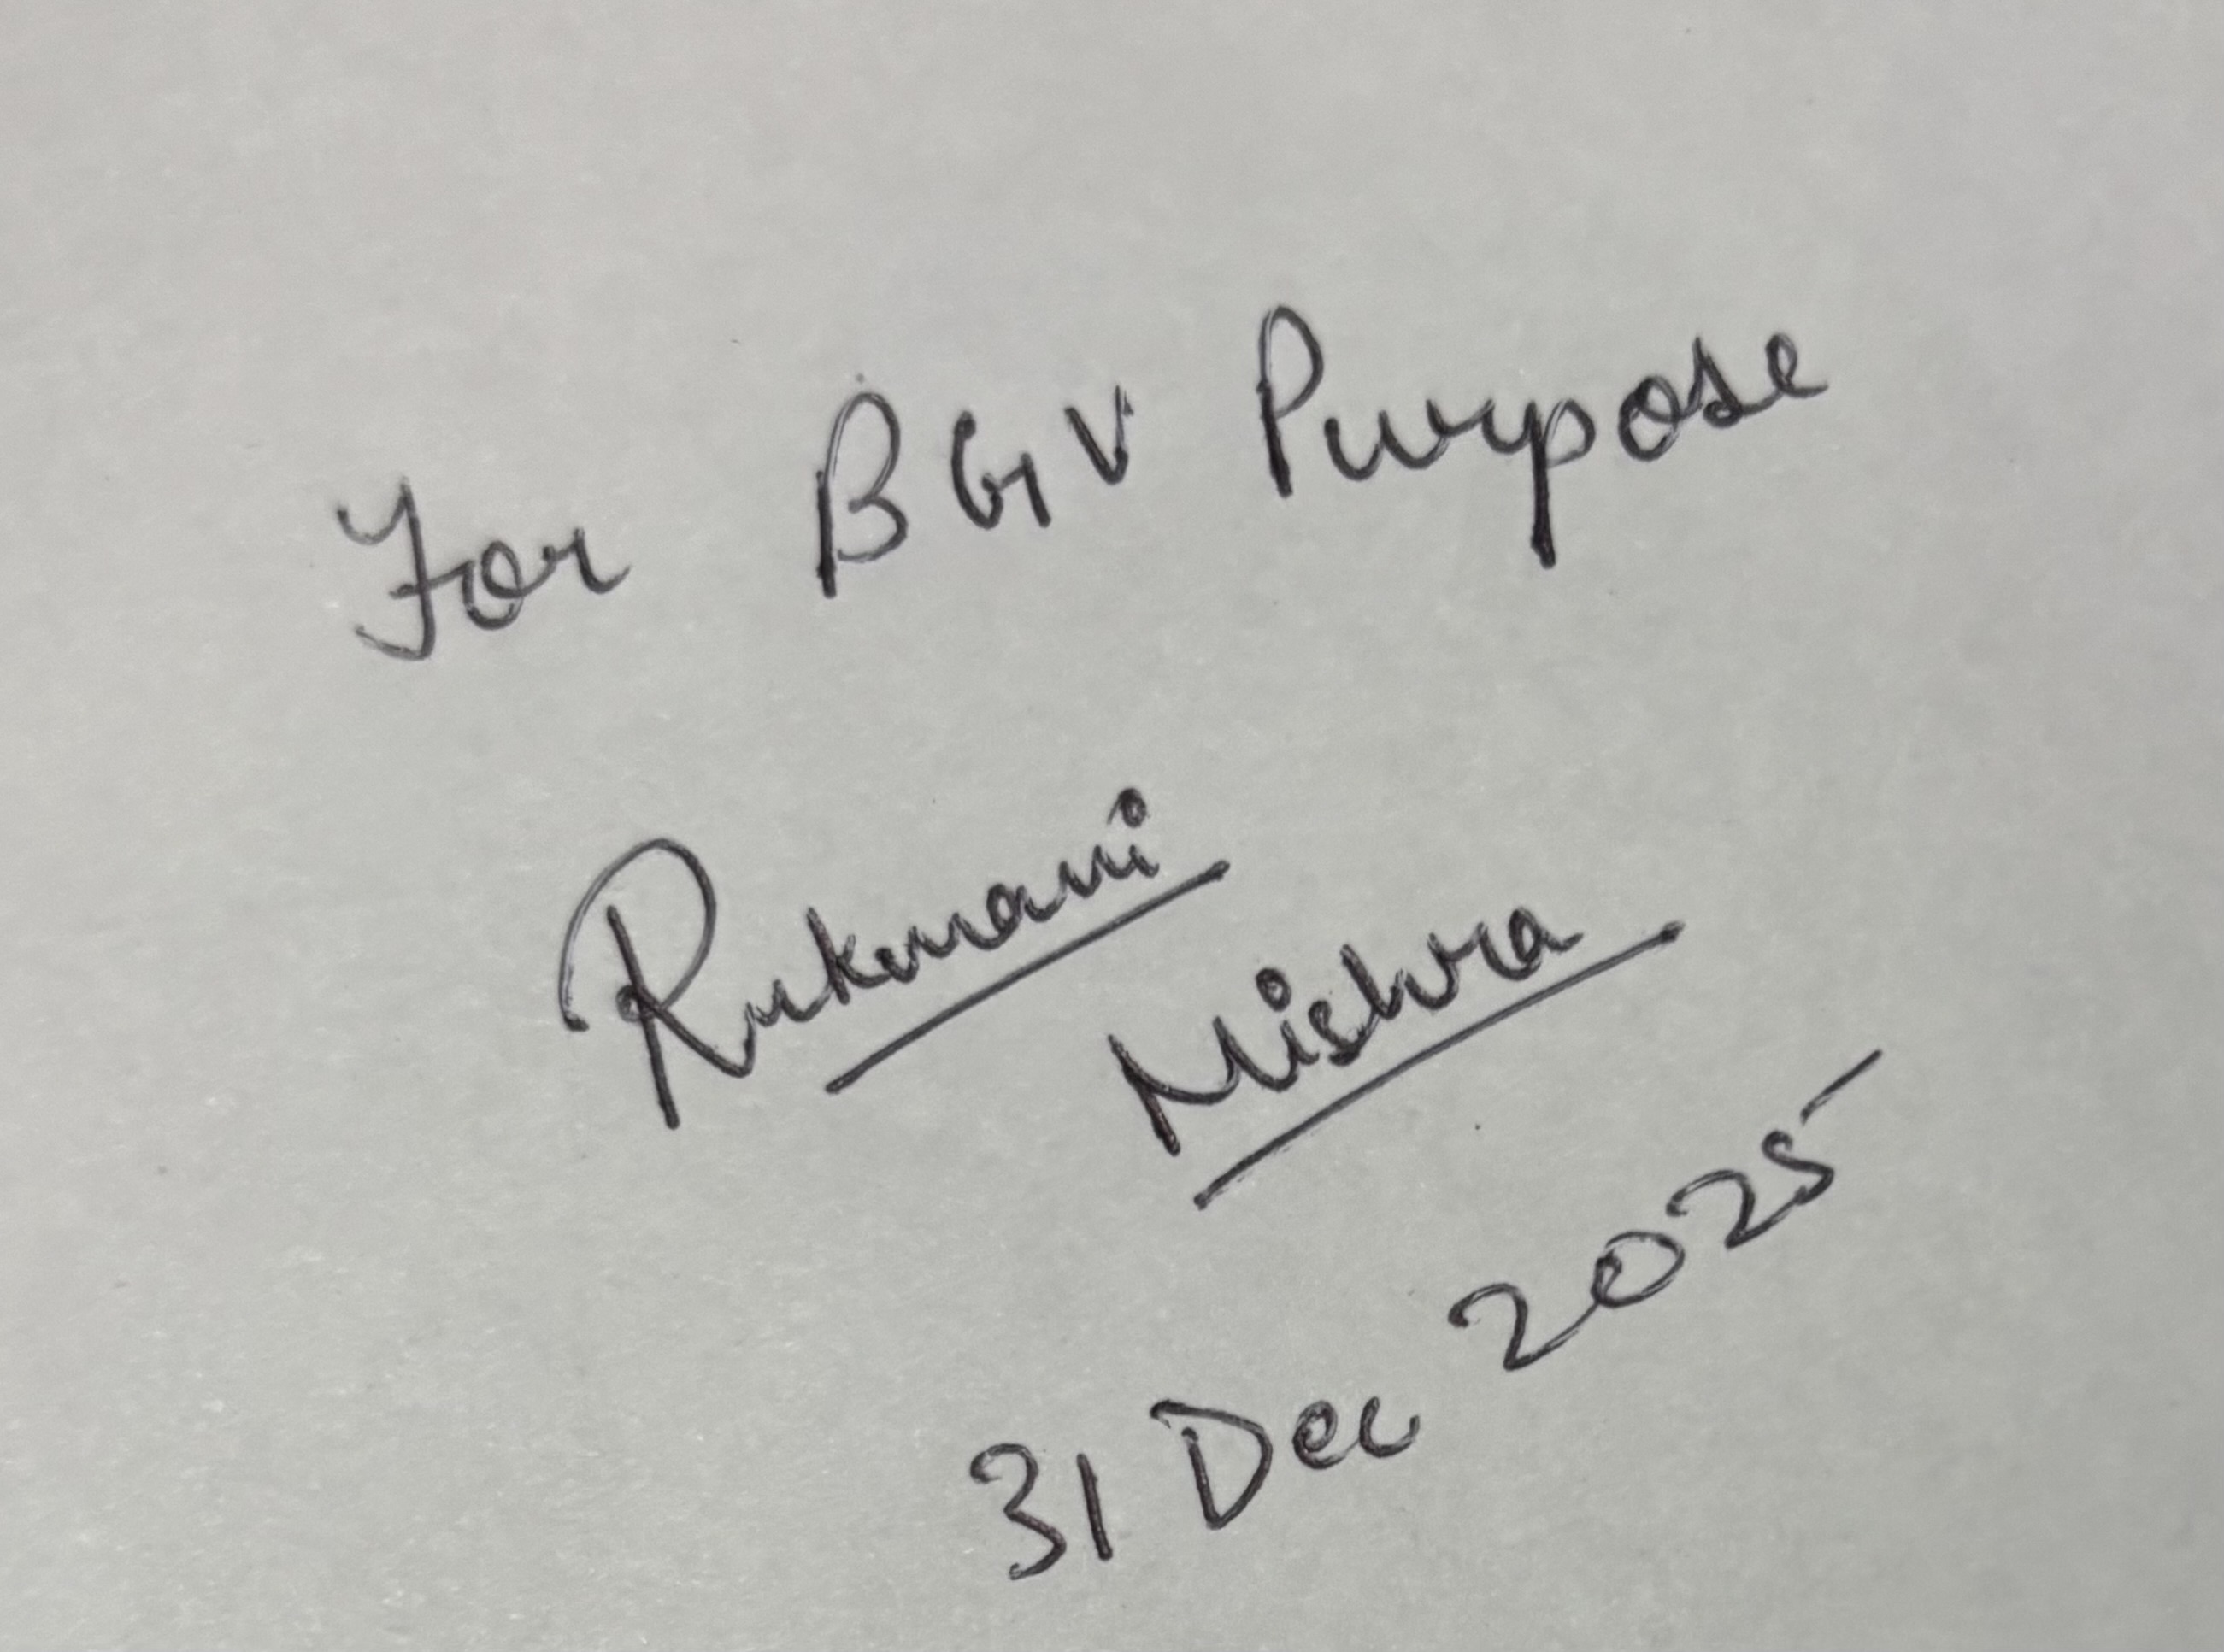 For BGV Purpose
Rukmani
Mishra
31 Dec 2025